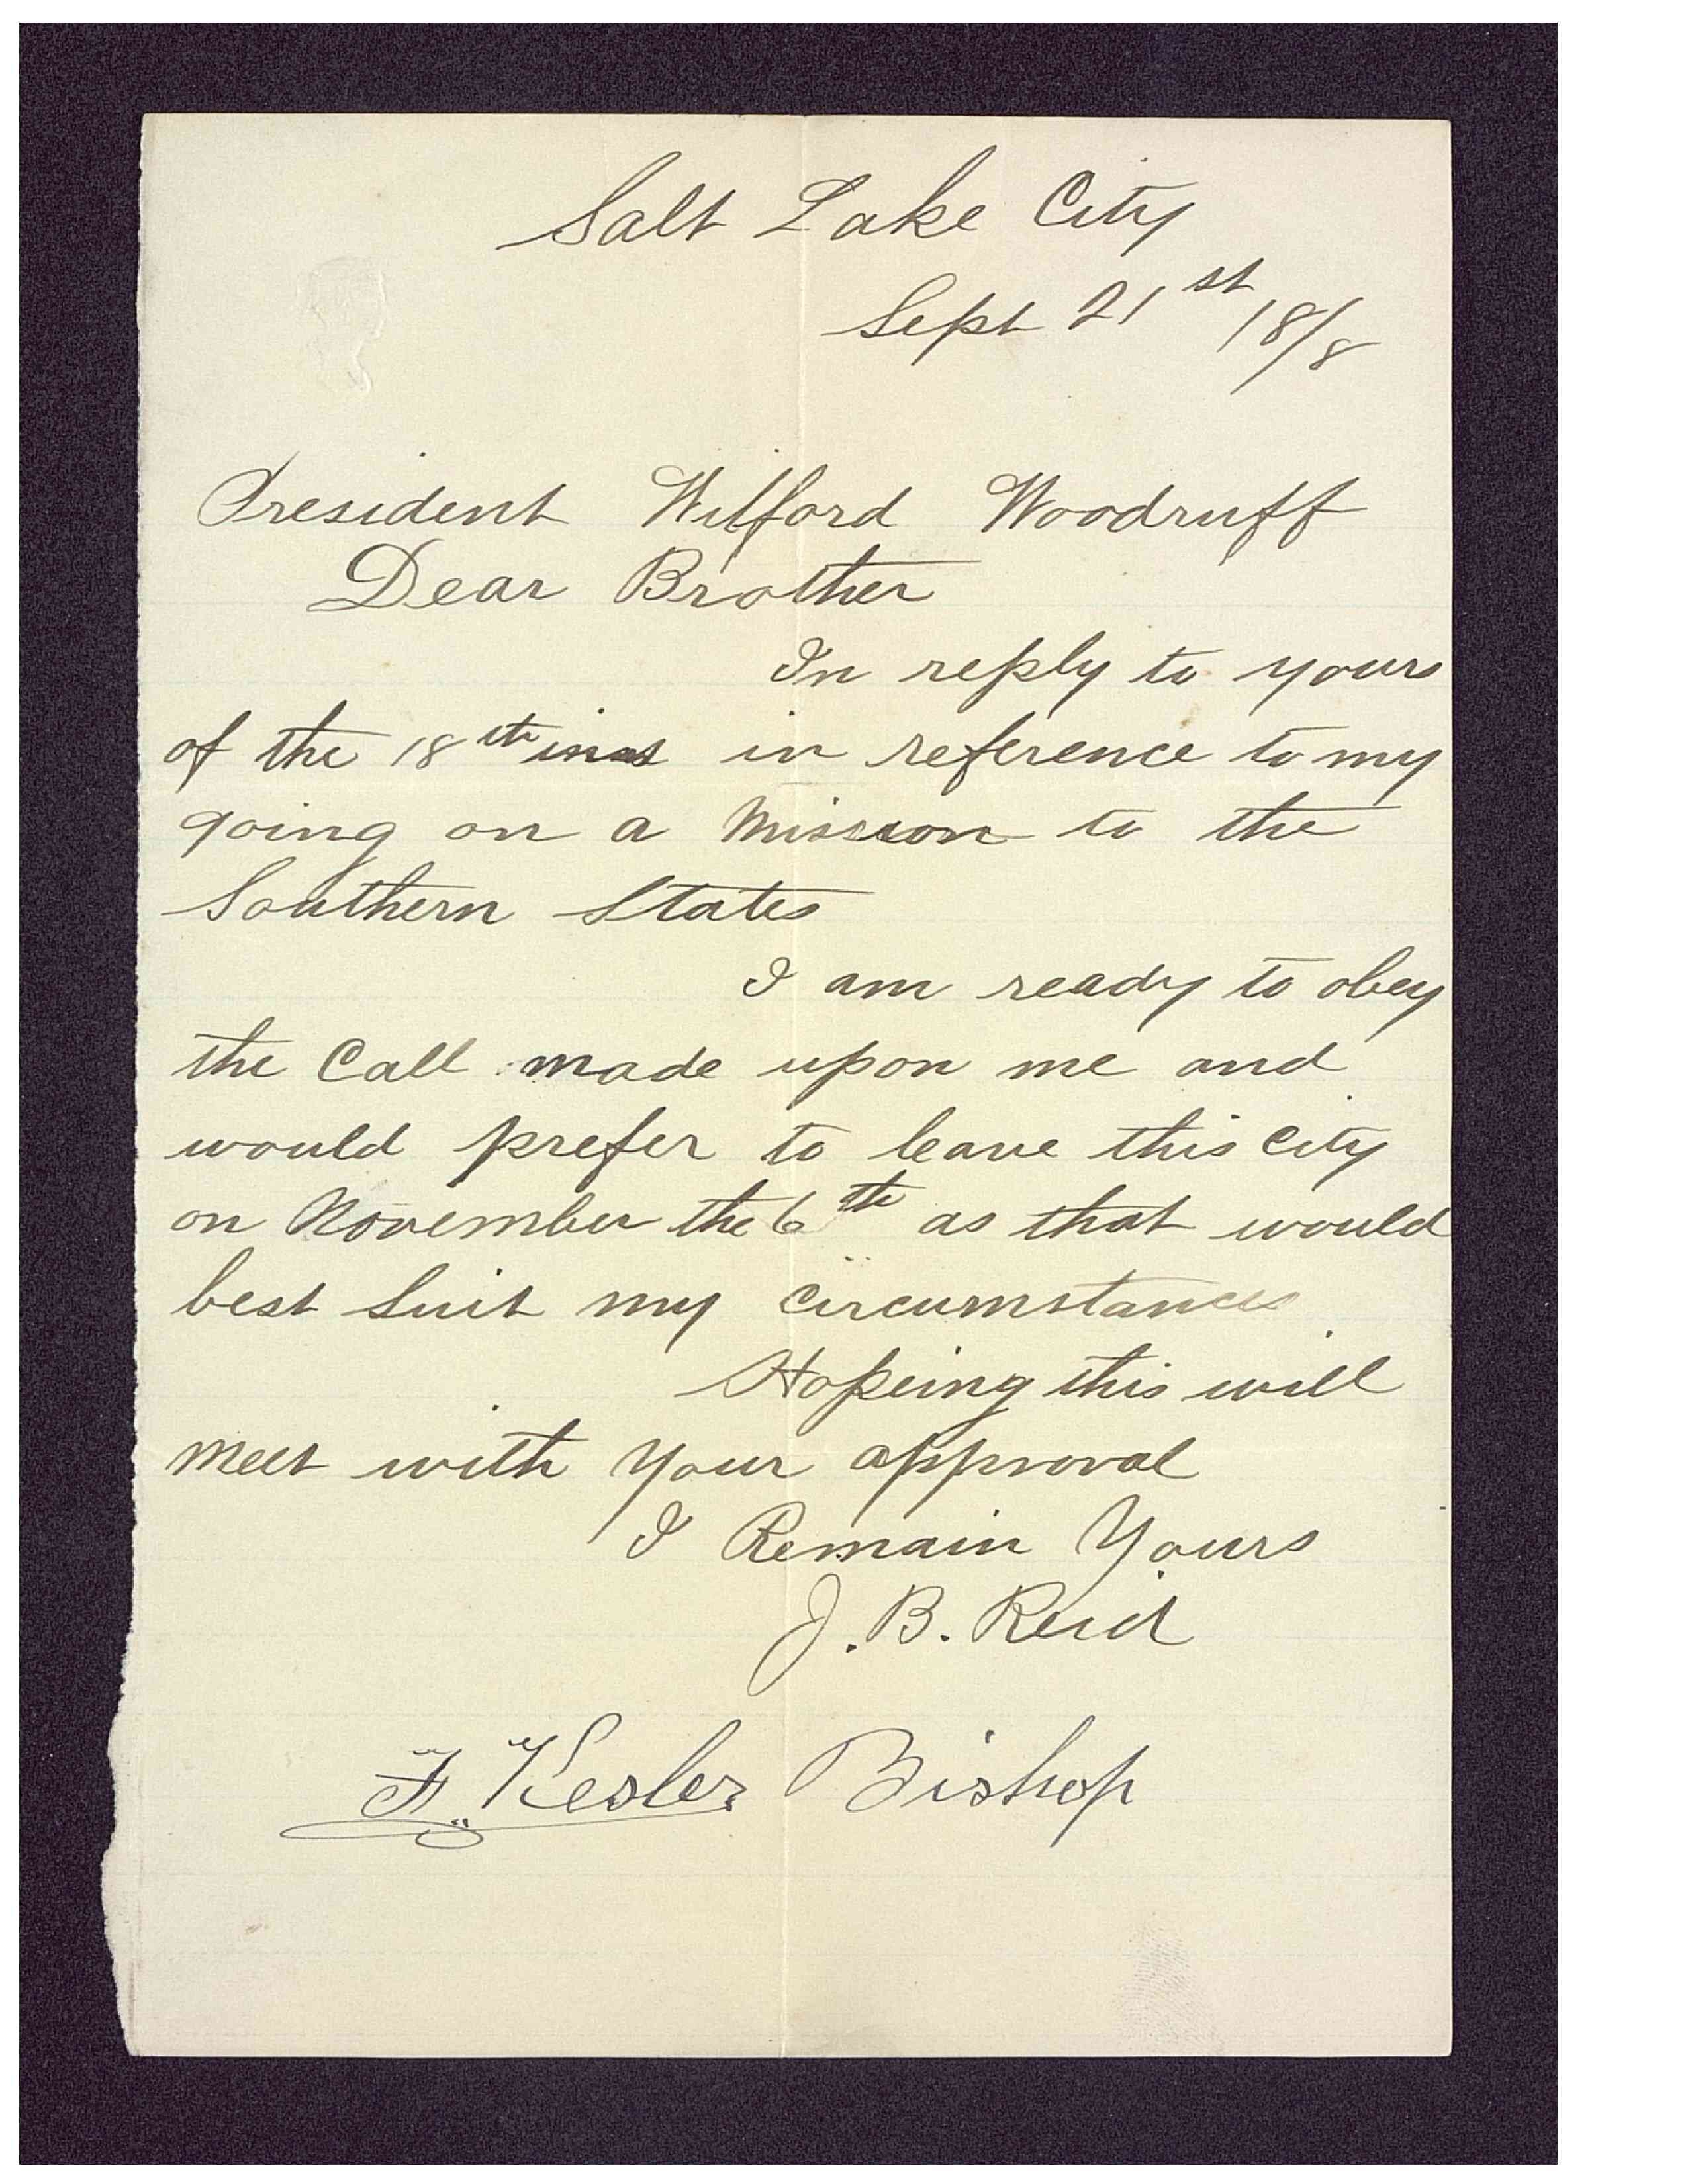 Salt Lake City
Sept 21st 18/8
President Wilford Woodruff
Dear Brother
In reply to yours
of the 18th inst in reference to my
going on a Mission to the
Southern States
I am ready to obey
the Call made upon me and
would prefer to leave this City
on November the 6th as that would
best Suit my Circumstances
Hopeing this will
meet with your approval
I Remain Yours
J. B. Reid
F. Kesler Bishop